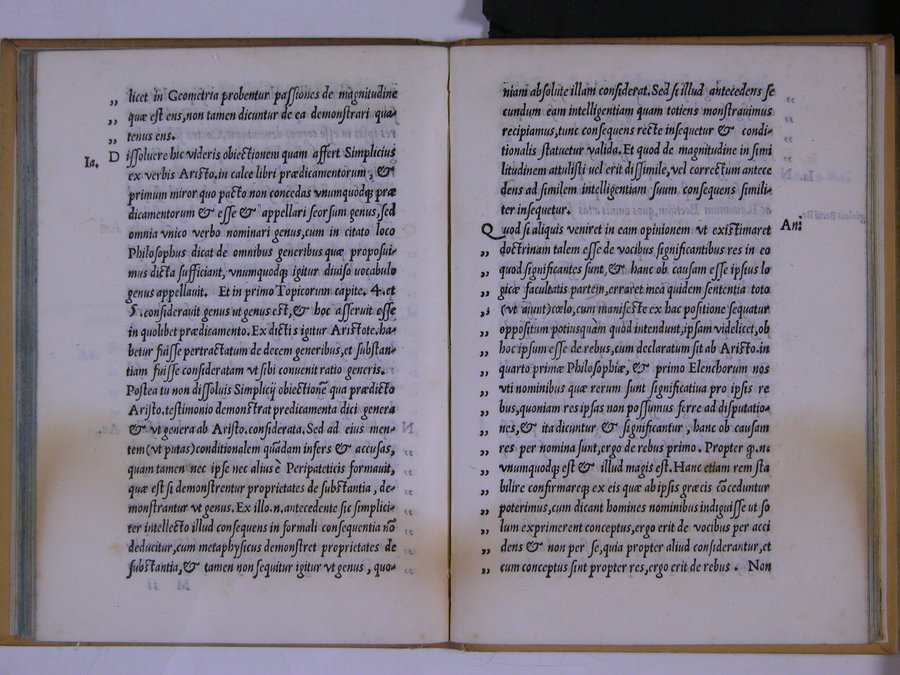 licet in Geometria probentur passiones de magnitudine
quæ est ens, non tamen dicuntur de ea demonstrari qua-
tenus ens.
Ia,
Dissoluere hic videris obiectionem quam affert Simplicius
ex verbis Aristo, in calce libri prædicamentorum, &
primum miror quo pacto non concedas vnumquodq; præ
dicamentorum & esse & appellari seorsum genus, sed
omnia vnico verbo nominari genus, cum in citato loco
Philosophus dicat de omnibus generibus quæ proposui-
mus dicta sufficiant, vnumquodq; igitur diuiso vocabulo
genus appellauit. Et in primo Topicorum capite. 4. et
5. considerauit genus ut genus est, & hoc asseruit esse
in quolibet prædicamento. Ex dictis igitur Aristote. ha-
betur fuisse pertractatum de decem generibus, et substan-
tiam fuisse consideratam vt sibi conuenit ratio generis.
Postea tu non dissoluis Simplicij obiectionē qua prædicto
Aristo. testimonio demonstrat predicamenta dici genera
& vt genera ab Aristo. considerata. Sed ad eius men-
tem (vt putas) conditionalem quādam infers & accusas,
quam tamen nec ipse nec alius è Peripateticis formauit,
quæ est si demonstrentur proprietates de substantia, de-
monstrantur vt genus. Ex illo. n. antecedente sic simplici-
ter intellecto illud consequens in formali consequentia nō
deducitur, cum metaphysicus demonstret proprietates de
substantia, & tamen non sequitur igitur vt genus, quo-
M ii
niam absolute illam considerat. Sed si illud antecedens se
cundum eam intelligentiam quam totiens monstrauimus
recipiamus, tunc consequens recte insequetur & condi-
tionalis statuetur valida. Et quod de magnitudine in simi
litudinem attulisti uel erit dissimile, vel correctum antece
dens ad similem intelligentiam suum consequens simili-
ter insequetur.
An:
Quod si aliquis veniret in eam opinionem vt existimaret
doctrinam talem esse de vocibus significantibus res in eo
quod significantes sunt, & hanc ob causam esse ipsius lo
gicæ facultatis partem, erraret mea quidem sententia toto
(vt aiunt) cœlo, cum manifeste ex hac positione sequatur
oppositum potiusquam quod intendunt, ipsam videlicet, ob
hoc ipsum esse de rebus, cum declaratum sit ab Aristo. in
quarto primæ Philosophiæ, & primo Elenchorum nos
vti nominibus quæ rerum sunt significatiua pro ipsis re
bus, quoniam res ipsas non possumus ferre ad disputatio-
nes, & ita dicuntur & significantur, hanc ob causam
res per nomina sunt, ergo de rebus primo. Propter q. n.
vnumquodq; est & illud magis est. Hanc etiam rem sta
bilire confirmareq; ex eis quæ ab ipsis græcis cōceduntur
poterimus, cum dicant homines nominibus indiguisse ut so
lum exprimerent conceptus, ergo erit de vocibus per acci
dens & non per se, quia propter aliud considerantur, et
cum conceptus sint propter res, ergo erit de rebus. Non